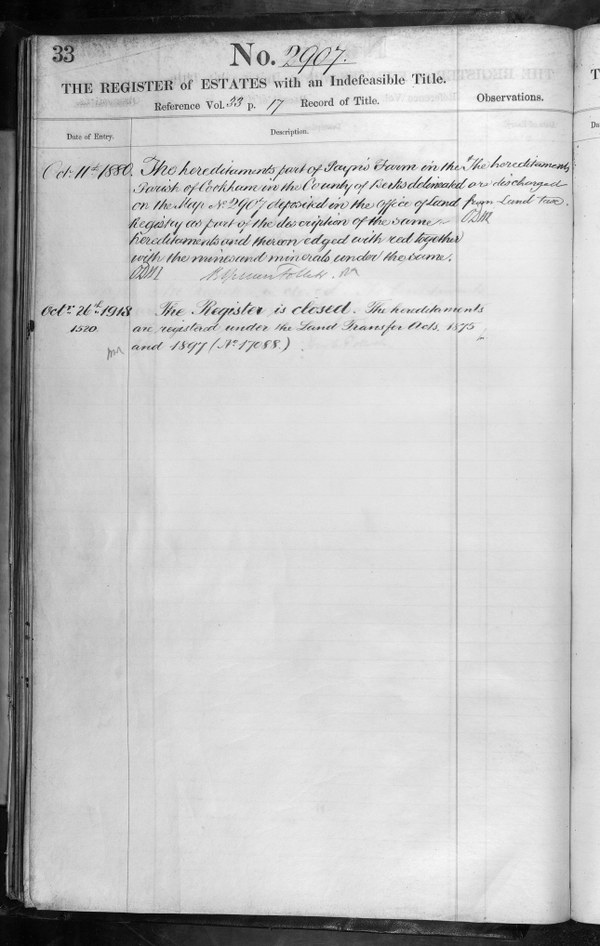 33
No. 2907.
THE REGISTER of ESTATES with an Indefeasible Title.
Reference Vol. 33 p. 17 Record of Title.
Observations.
Date of Entry.
Description.
Oct. 11th 1880.
The hereditaments part of Payn's Farm in the
Parish of Cookham in the County of Berks delineated
on the Map No 2907 deposited in the office of Land
Registry as part of the description of the same
hereditaments and thereon edged with red together
with the mines and minerals under the same.
The hereditaments
are discharged
from Land Tax.
Octr 26th 1918
1520
The Register is closed. The hereditaments
are registered under the Land Transfer Acts, 1875
and 1897 (No 17088)